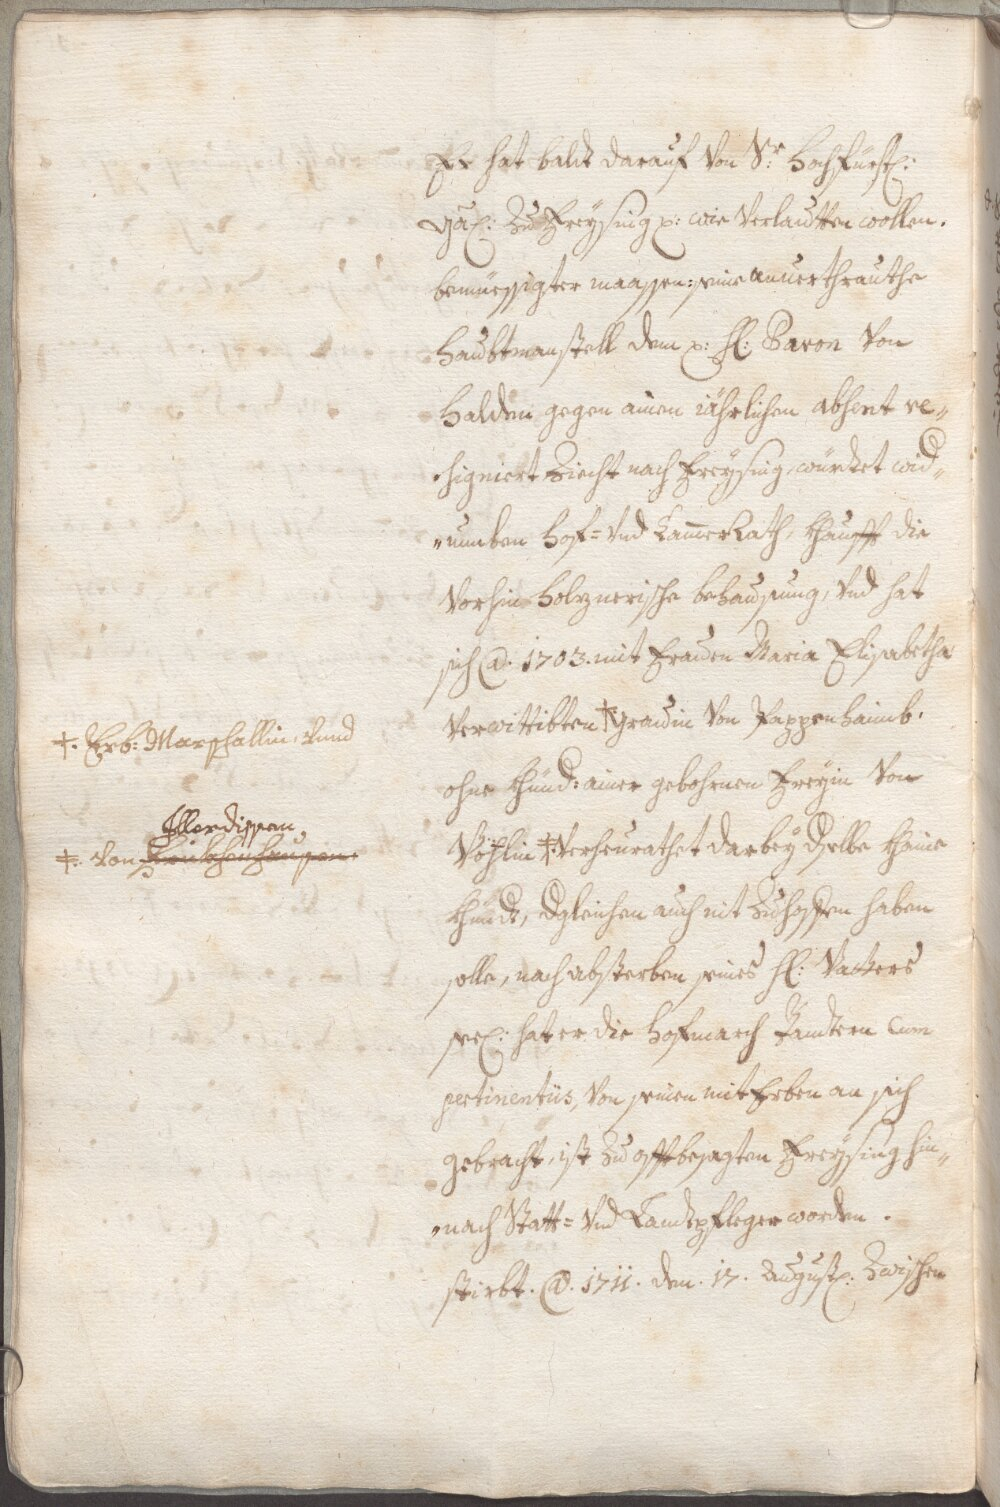 Er hat baldt darauf von Sr: Hochfürstl:
Gdl: Zu Freysing p: wie verlautten wollen.
bemüessigter maassen: seine anuerthrauthe
Haubtmanstell dem p: Hl: Baron von
Halden gegen ainen iährlichen absent re„
„signiert Ziecht nach Freysing, würdtet wid„
„rumben Hof= vnd CammerRath, Khaufft die
vorhin Holznerische behausung, vnd hat
sich @: 1703. mit Frauen Maria Elisabetha
verwittibten † Gräuin von Pappenhaimb,
†. Erb: Marschallin, vnnd
ohne Khünd: ainer gebohrnen Freyin von
Illerdissen
Vöhlin ‡. verheurathet darbey dselbe khaine
‡. von
Khündt, dgleichen auch nit Zuhoffen haben
solle, nach absterben seines Hl: Vatters
seel: hat er die Hofmarch Jandtern cum
pertinentiis, von seinen mit Erben an sich
gebracht, ist Zu offtbesagten Freysing hin„
„nach Statt= vnd Landtpfleger worden.
stirbt. @. 1711. den. 17. August: Zwischen